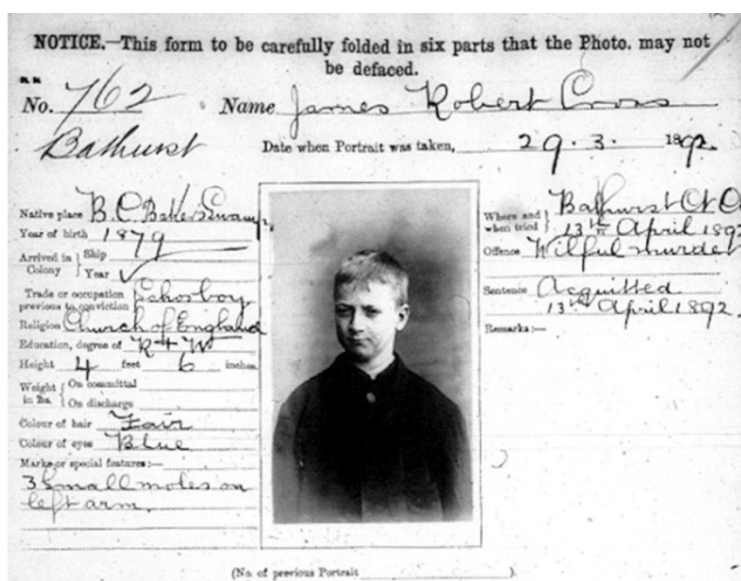 NOTICE.—This form to be carefully folded in six parts that the Photo. may not
be defaced.
No. 762 Name James Robert Cross
Bathurst
Date when Portrait was taken, 29.3.1892.
Native place B.C. Bakers Swamp,
Year of birth 1879
Arrived in Colony } Ship
Year
Trade or occupation previous to conviction } Schoolboy
Religion Church of England
Education, degree of R + W
Height 4 feet 6 inches
Weight in lbs. { On committal
On discharge
Colour of hair Fair
Colour of eyes Blue
Marks or special features:—
3 Small moles on
left arm.
Where and when tried } Bathurst Ct
13th April 1892
Offence Wilful murder
Sentence Acquitted
13th April 1892.
Remarks:—
(No. of previous Portrait ).